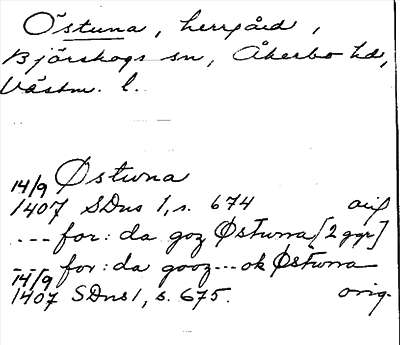 Östuna, herrgård,
Björskogs sn, Åkerbo hd,
Västm. l.
14/9 Østwna
1407 SDns 1, s. 674 orig
--- for: da goz Østwna [2 ggr]
--- for: da gooz... ok Østwna
14/9
1407 SDns 1, s. 675. orig.